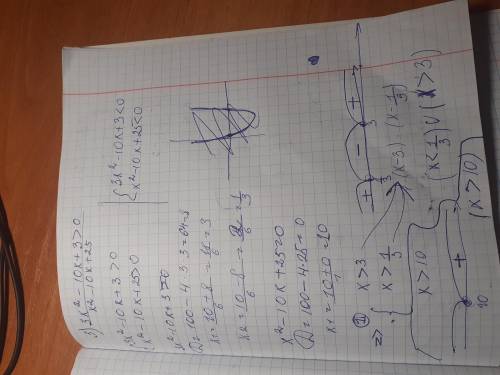 3) 3x²-10x+3 / x²-10x+25 > 0
{3x²-10x+3>0
x²-10x+25>0
{3x²-10x+3<0
x²-10x+25<0
3x²-10x+3>0
D=100-4·3·3=64=8
x1=10+8/6=18/6=3
x2=10-8/6=2/6=1/3
x²-10x+25=0
D=100-4·25=0
x1=10±0/1=10
①
=> {x>3
x>1/3
(x-3) (x-1/3)
+ - +
1/3 3
(x<1/3)∪(x>3)
x>10
(x>10)
+
10